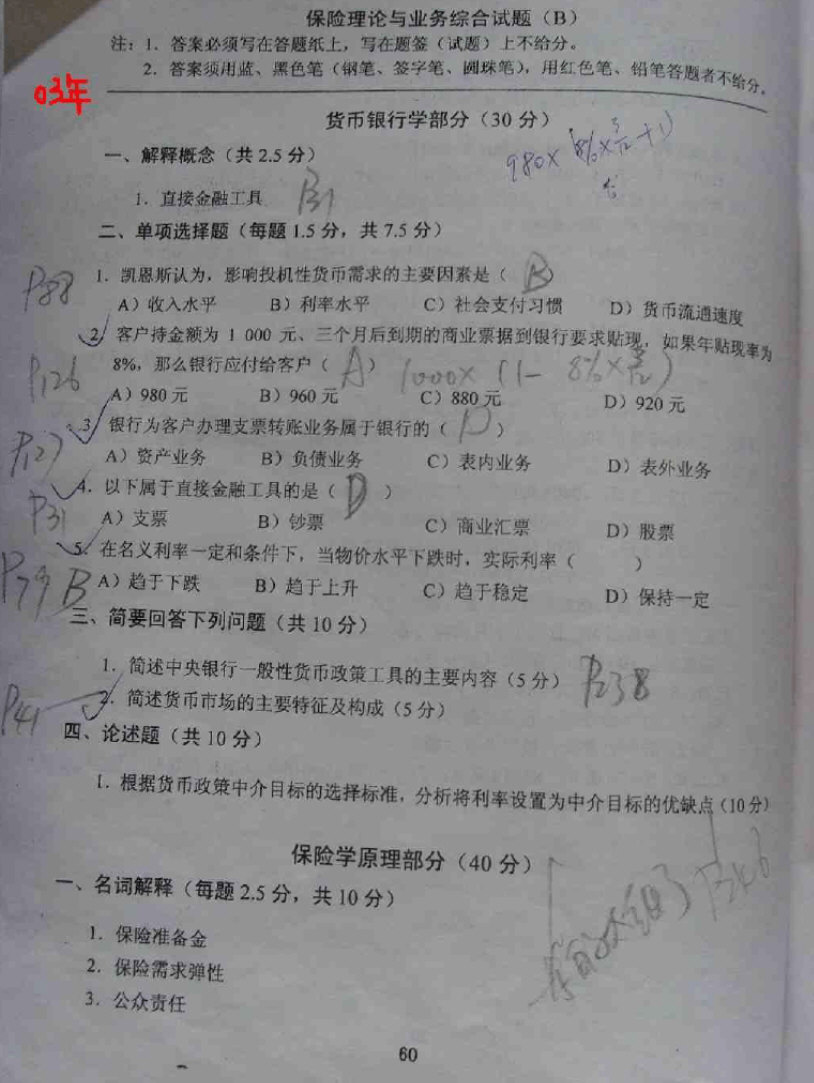 保险理论与业务综合试题（B）
注：1. 答案必须写在答题纸上，写在题签（试题）上不给分。
2. 答案须用蓝、黑色笔（钢笔、签字笔、圆珠笔），用红色笔、铅笔答题者不给分。
03年
货币银行学部分（30 分）
980×(8%×3/12+1)
一、解释概念（共 2.5 分）
1. 直接金融工具 P31
二、单项选择题（每题 1.5 分，共 7.5 分）
P88 1. 凯恩斯认为，影响投机性货币需求的主要因素是（ B ）
A）收入水平 B）利率水平 C）社会支付习惯 D）货币流通速度
2. 客户持金额为 1 000 元、三个月后到期的商业票据到银行要求贴现，如果年贴现率为
P126 8%，那么银行应付给客户（ A ） 1000×(1-8%×3/12)
A）980 元 B）960 元 C）880 元 D）920 元
3. 银行为客户办理支票转账业务属于银行的（ D ）
P127 A）资产业务 B）负债业务 C）表内业务 D）表外业务
4. 以下属于直接金融工具的是（ D ）
P31 A）支票 B）钞票 C）商业汇票 D）股票
5. 在名义利率一定和条件下，当物价水平下跌时，实际利率（ ）
P79 B A）趋于下跌 B）趋于上升 C）趋于稳定 D）保持一定
三、简要回答下列问题（共 10 分）
1. 简述中央银行一般性货币政策工具的主要内容（5 分） P238
P41 2. 简述货币市场的主要特征及构成（5 分）
四、论述题（共 10 分）
1. 根据货币政策中介目标的选择标准，分析将利率设置为中介目标的优缺点（10 分）
保险学原理部分（40 分）
一、名词解释（每题 2.5 分，共 10 分）
1. 保险准备金
2. 保险需求弹性
3. 公众责任
60